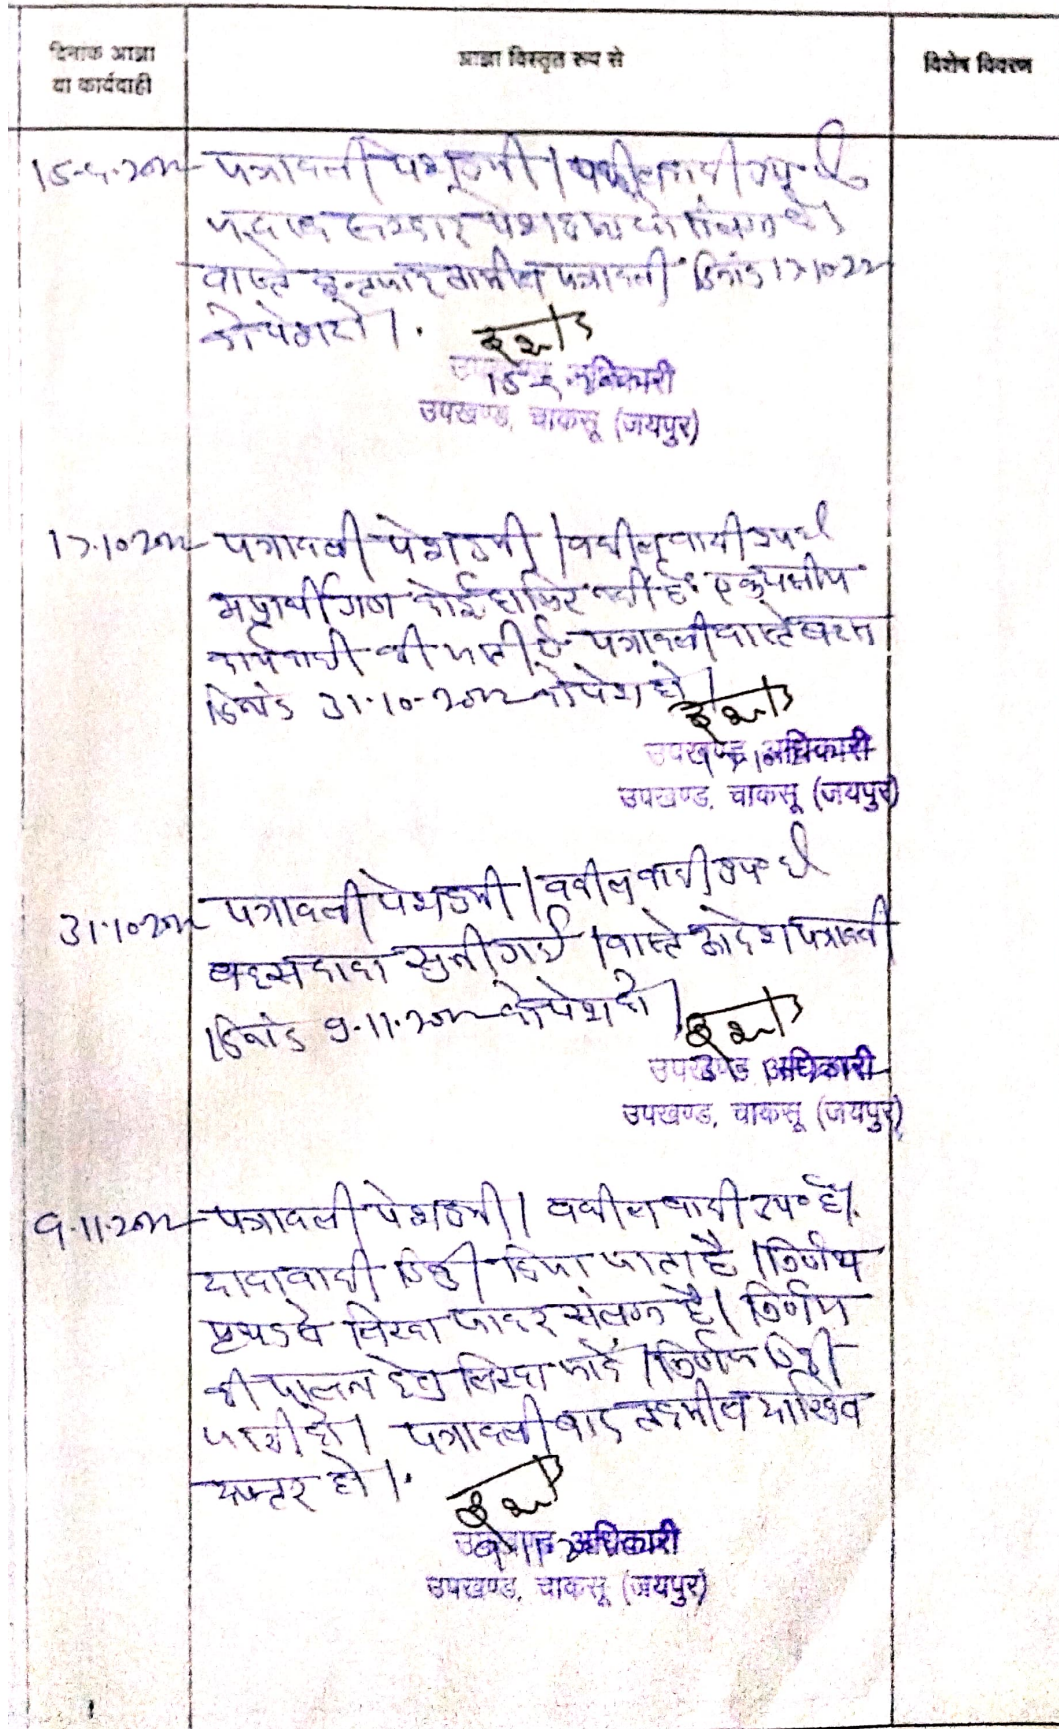 दिनांक आज्ञा
या कार्यवाही
आज्ञा विस्तृत रूप से
विशेष विवरण
पत्रावली पेश हुयी। वकील वादी उप०
वास्ते इन्तजार तामील पत्रावली दिनांक 17.10.22
को पेश हो।
अधिकारी
उपखण्ड, चाकसू (जयपुर)
17.10.2022 पत्रावली पेश हुयी। वकील वादी उप० है
अप्रार्थीगण कोई हाजिर नहीं है एकपक्षीय
कार्यवाही की जाती है पत्रावली वास्ते बहस
दिनांक 31.10.2022 को पेश हो।
उपखण्ड अधिकारी
उपखण्ड, चाकसू (जयपुर)
31.10.2022 पत्रावली पेश हुयी। वकील वादी उप० है
बहस दावा सुनी गई। वास्ते आदेश पत्रावली
दिनांक 9.11.2022 को पेश हो।
उपखण्ड अधिकारी
उपखण्ड, चाकसू (जयपुर)
9.11.2022 पत्रावली पेश हुयी। वकील वादी उप० है।
दावा वादी डिक्री किया जाता है। निर्णय
पृथक से लिखा जाकर संलग्न है। निर्णय
की पालना हेतु लिखा जावे। निर्णय डिक्री
जारी हो। पत्रावली बाद तकमील दाखिल
दफ्तर हो।
अधिकारी
उपखण्ड, चाकसू (जयपुर)